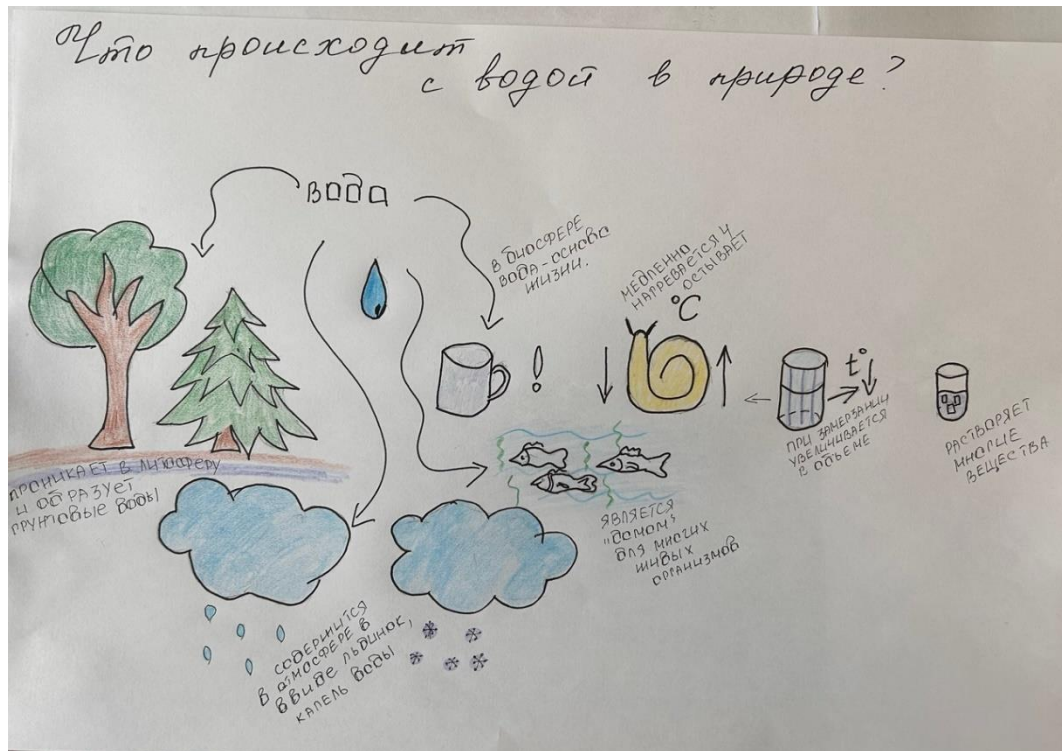 Что происходит
с водой в природе?
вода
в биосфере
вода-основа
жизни.
!
медленно
нагревается и
остывает
°C
t°
при замерзании
увеличивается
в объеме
растворяет
многие
вещества
проникает в литосферу
и образует
грунтовые воды
является
"домом"
для многих
живых
организмов
содержится
в атмосфере в
ввиде льдинок,
капель воды